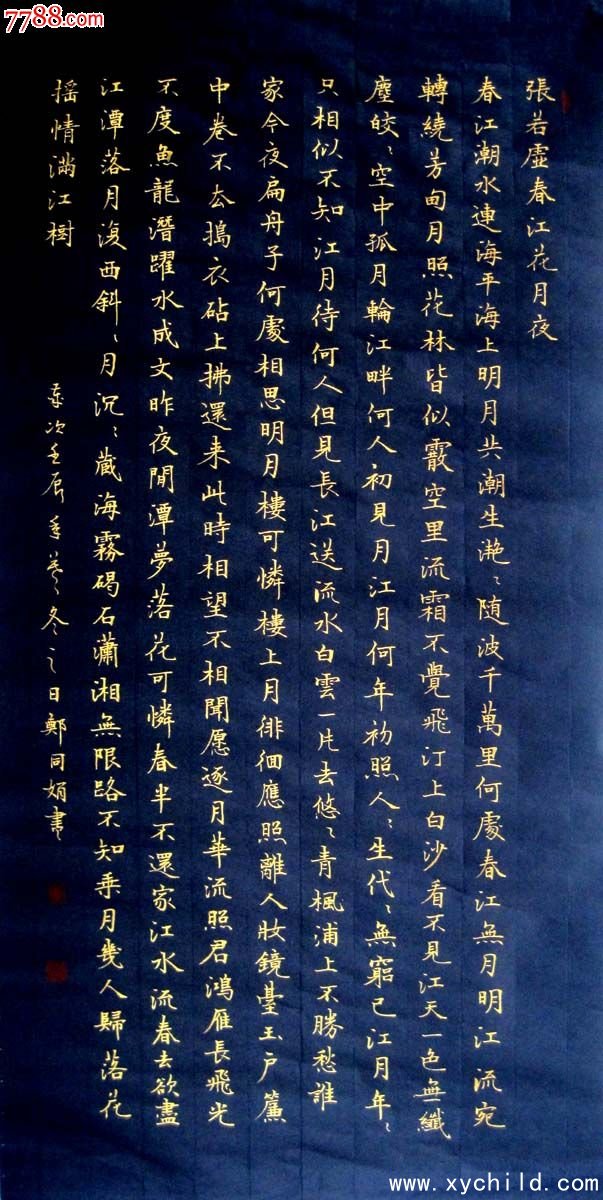 7788.com
張若虛春江花月夜
春江潮水連海平海上明月共潮生灧〻随波千萬里何處春江無月明江流宛
轉繞芳甸月照花林皆似霰空里流霜不覺飛汀上白沙看不見江天一色無纖
塵皎〻空中孤月輪江畔何人初見月江月何年初照人〻生代〻無窮已江月年〻
只相似不知江月待何人但見長江送流水白雲一片去悠〻青楓浦上不勝愁誰
家今夜扁舟子何處相思明月樓可憐樓上月徘徊應照離人妝鏡臺玉户簾
中卷不去搗衣砧上拂還来此時相望不相聞愿逐月華流照君鴻雁長飛光
不度魚龍潛躍水成文昨夜閒潭夢落花可憐春半不還家江水流春去欲盡
江潭落月復西斜〻月沉〻藏海霧碣石瀟湘無限路不知乘月幾人歸落花
摇情满江樹
歲次壬辰年暮冬之日鄭同娟書
www.xychild.com